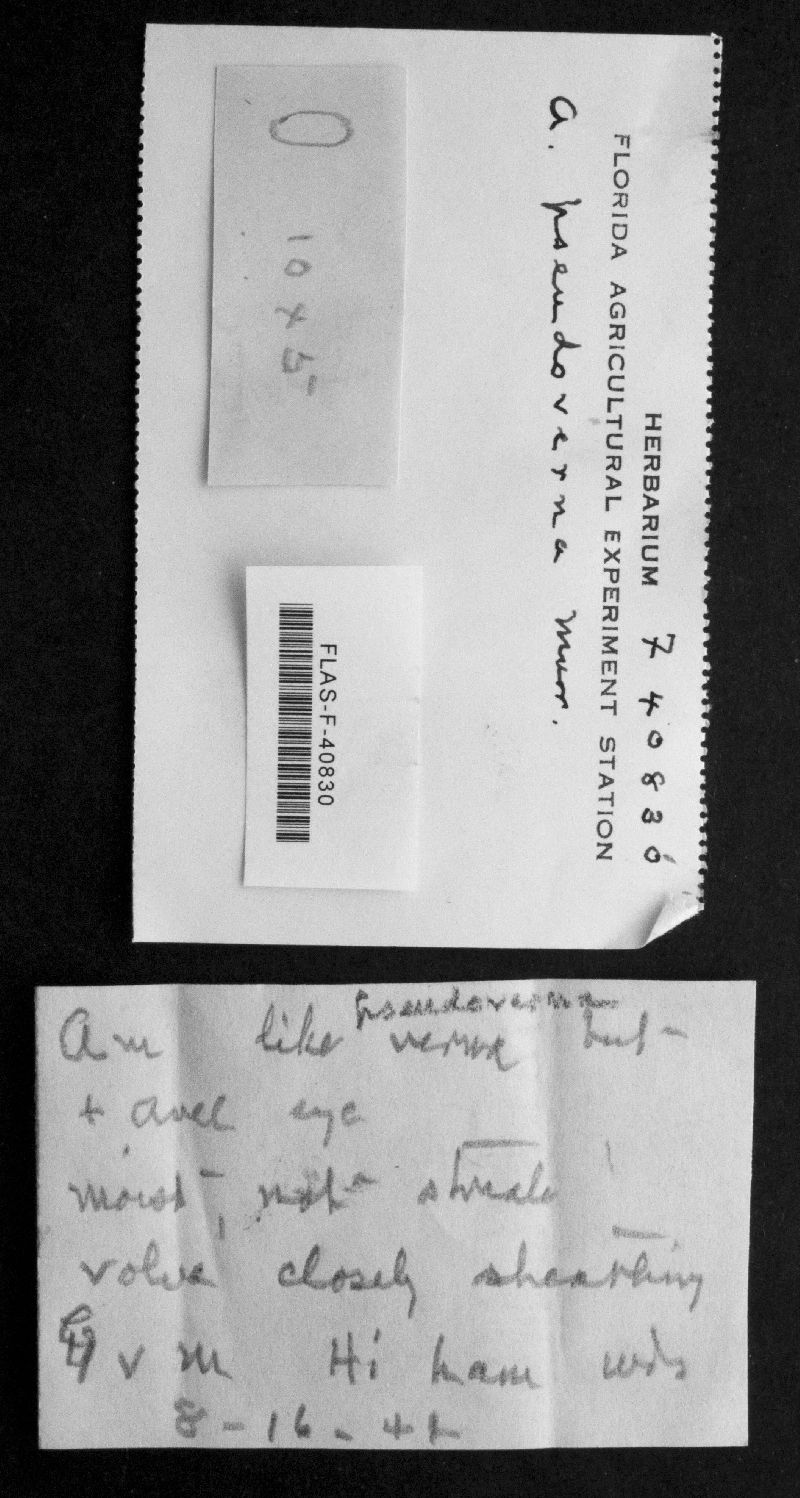 HERBARIUM F 40830
FLORIDA AGRICULTURAL EXPERIMENT STATION
A. pseudoverna Mur.
10 x 5
FLAS-F-40830
pseudoverna
Am like verna but
+ avel eye
moist, not streak
volva closely sheathing
G v m Hi ham wds
8-16-41